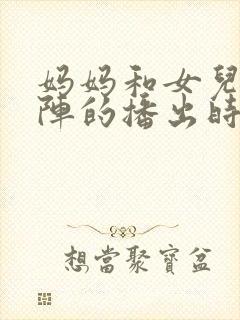 妈妈和女兒
陣的播出時
想當聚寶盆